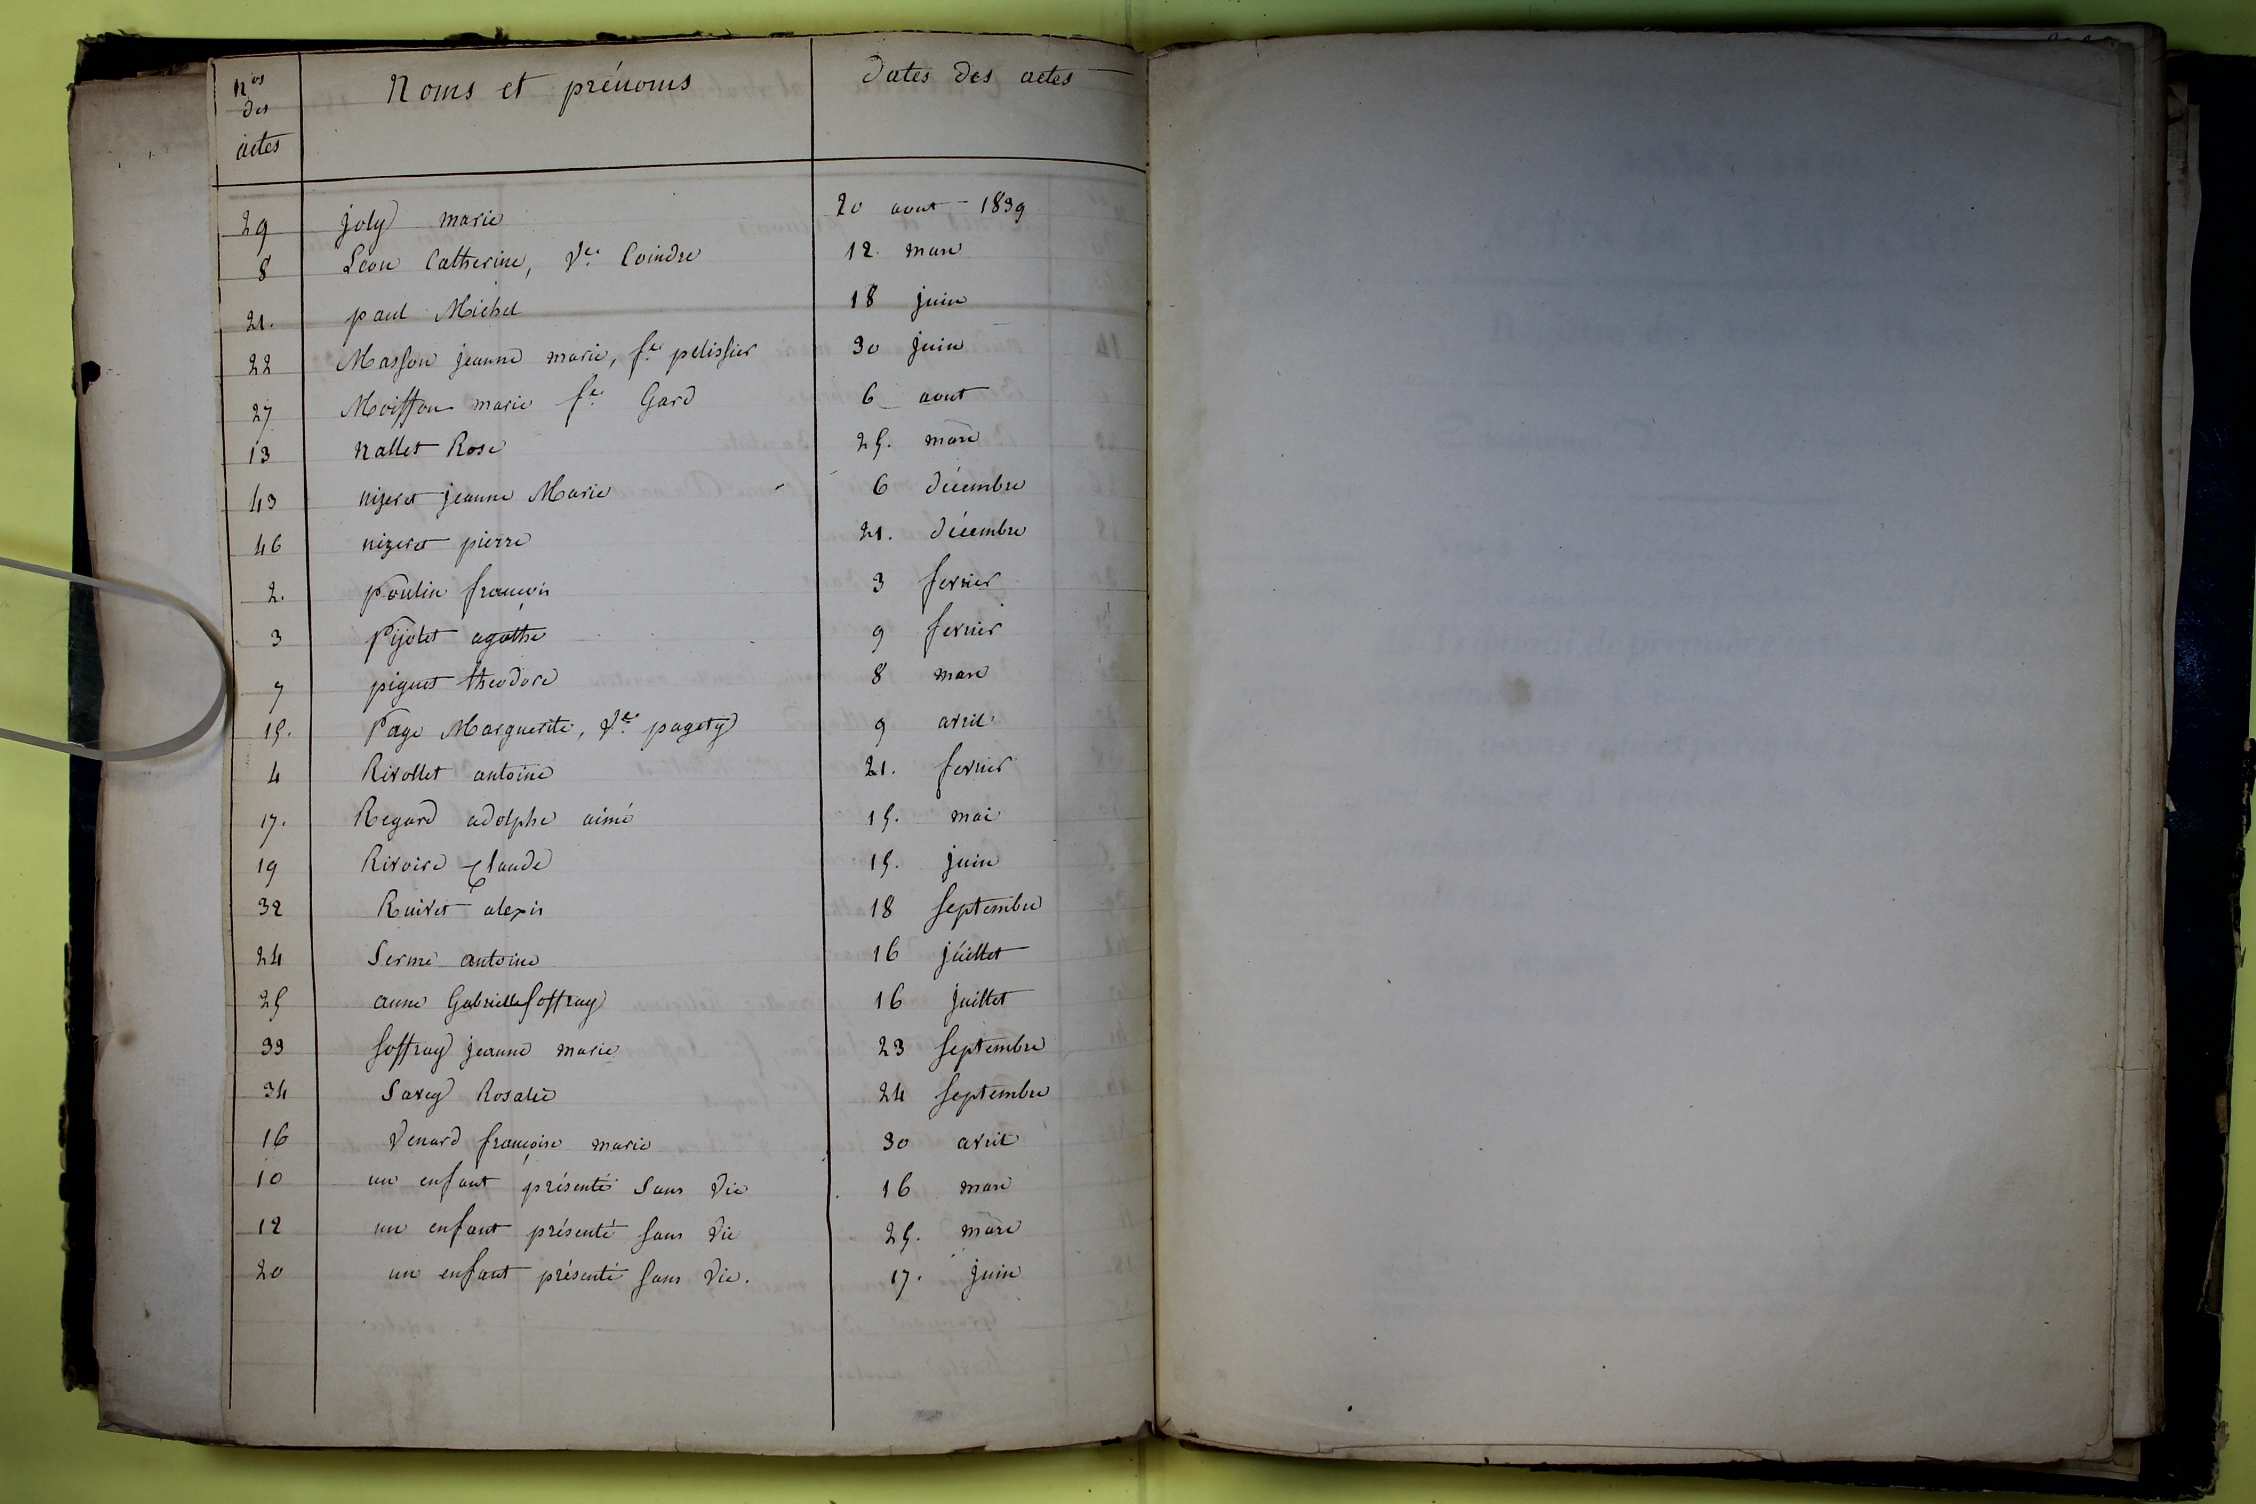 nos des actes Noms et prénoms Dates des actes
29 joly marie 20 aout 1839
8 Leon Catherine, Ve. Coindre 12. mars
21. paul Michel 18 juin
22 Masson jeanne marie, fe. pelissier 30 juin
27 Moisson marie fe. Gard 6 aout
13 nallet Rose 25. mars
43 nizeret jeanne Marie 6 décembre
46 nizeret pierre 21. décembre
2. poulin françois 3 fevrier
3 Pijolet agathe 9 fevrier
7 piguet théodore 8 mars
15. Page Marguerite, Ve. pagety 9 avril
4 Rivollet antoine 21. fevrier
17. Regard adolphe aimé 15. mai
19 Rivoire Claude 15. juin
32 Ruivet alexis 18 Septembre
24 Serme antoine 16 juillet
25 anne Gabrielle Soffray 16 juillet
33 Soffray jeanne marie 23 Septembre
34 Savey Rosalie 24 Septembre
16 Venard françoise marie 30 avril
10 un enfant présenté Sans Vie 16 mars
12 un enfant présenté Sans Vie 25. mars
20 un enfant présenté Sans Vie. 17. juin